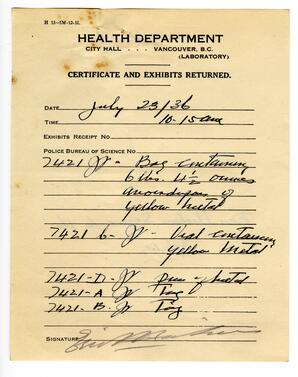 H 13—5M-12-31.
HEALTH DEPARTMENT
CITY HALL . . . VANCOUVER, B.C.
(LABORATORY)
CERTIFICATE AND EXHIBITS RETURNED.
DATE July 23/36
TIME 10-15 am
EXHIBITS RECEIPT NO.
POLICE BUREAU OF SCIENCE NO.
7421 - Bag containing
6 lbs. 4½ ounces
avoirdupois of
yellow metal
7421 - Vial containing
yellow metal
7421-D- of metal
7421-A Tag
7421-B Tag
SIGNATURE